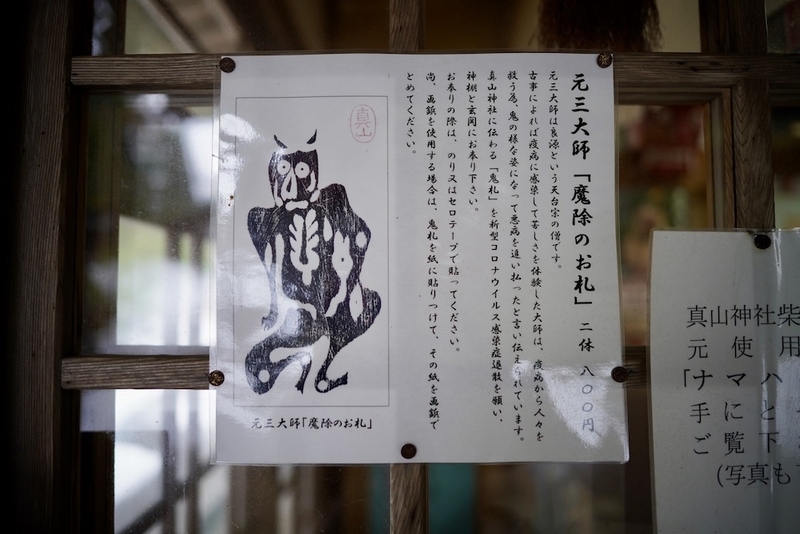 元三大師「魔除のお札」 二体 八〇〇円
元三大師は良源という天台宗の僧です。
古事によれば疫病に感染して苦しさを体験した大師は、疫病から人々を
救う為、鬼の様な姿になって悪病を追い払ったと言い伝えられています。
真山神社に伝わる「鬼札」を新型コロナウイルス感染症退散を願い、
神棚と玄関にお参り下さい。
お参りの際は、のり又はセロテープで貼ってください。
尚、画鋲を使用する場合は、鬼札を紙に貼りつけて、その紙を画鋲で
とめてください。
真山
元三大師「魔除のお札」
真山神社柴
元 使 用
「ナ マ ハ
手 に と
ご 覧 下
(写真も